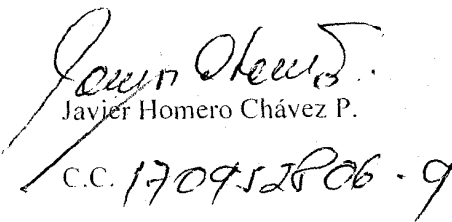 Javier Homero Chávez P.
C.C. 170952806-9